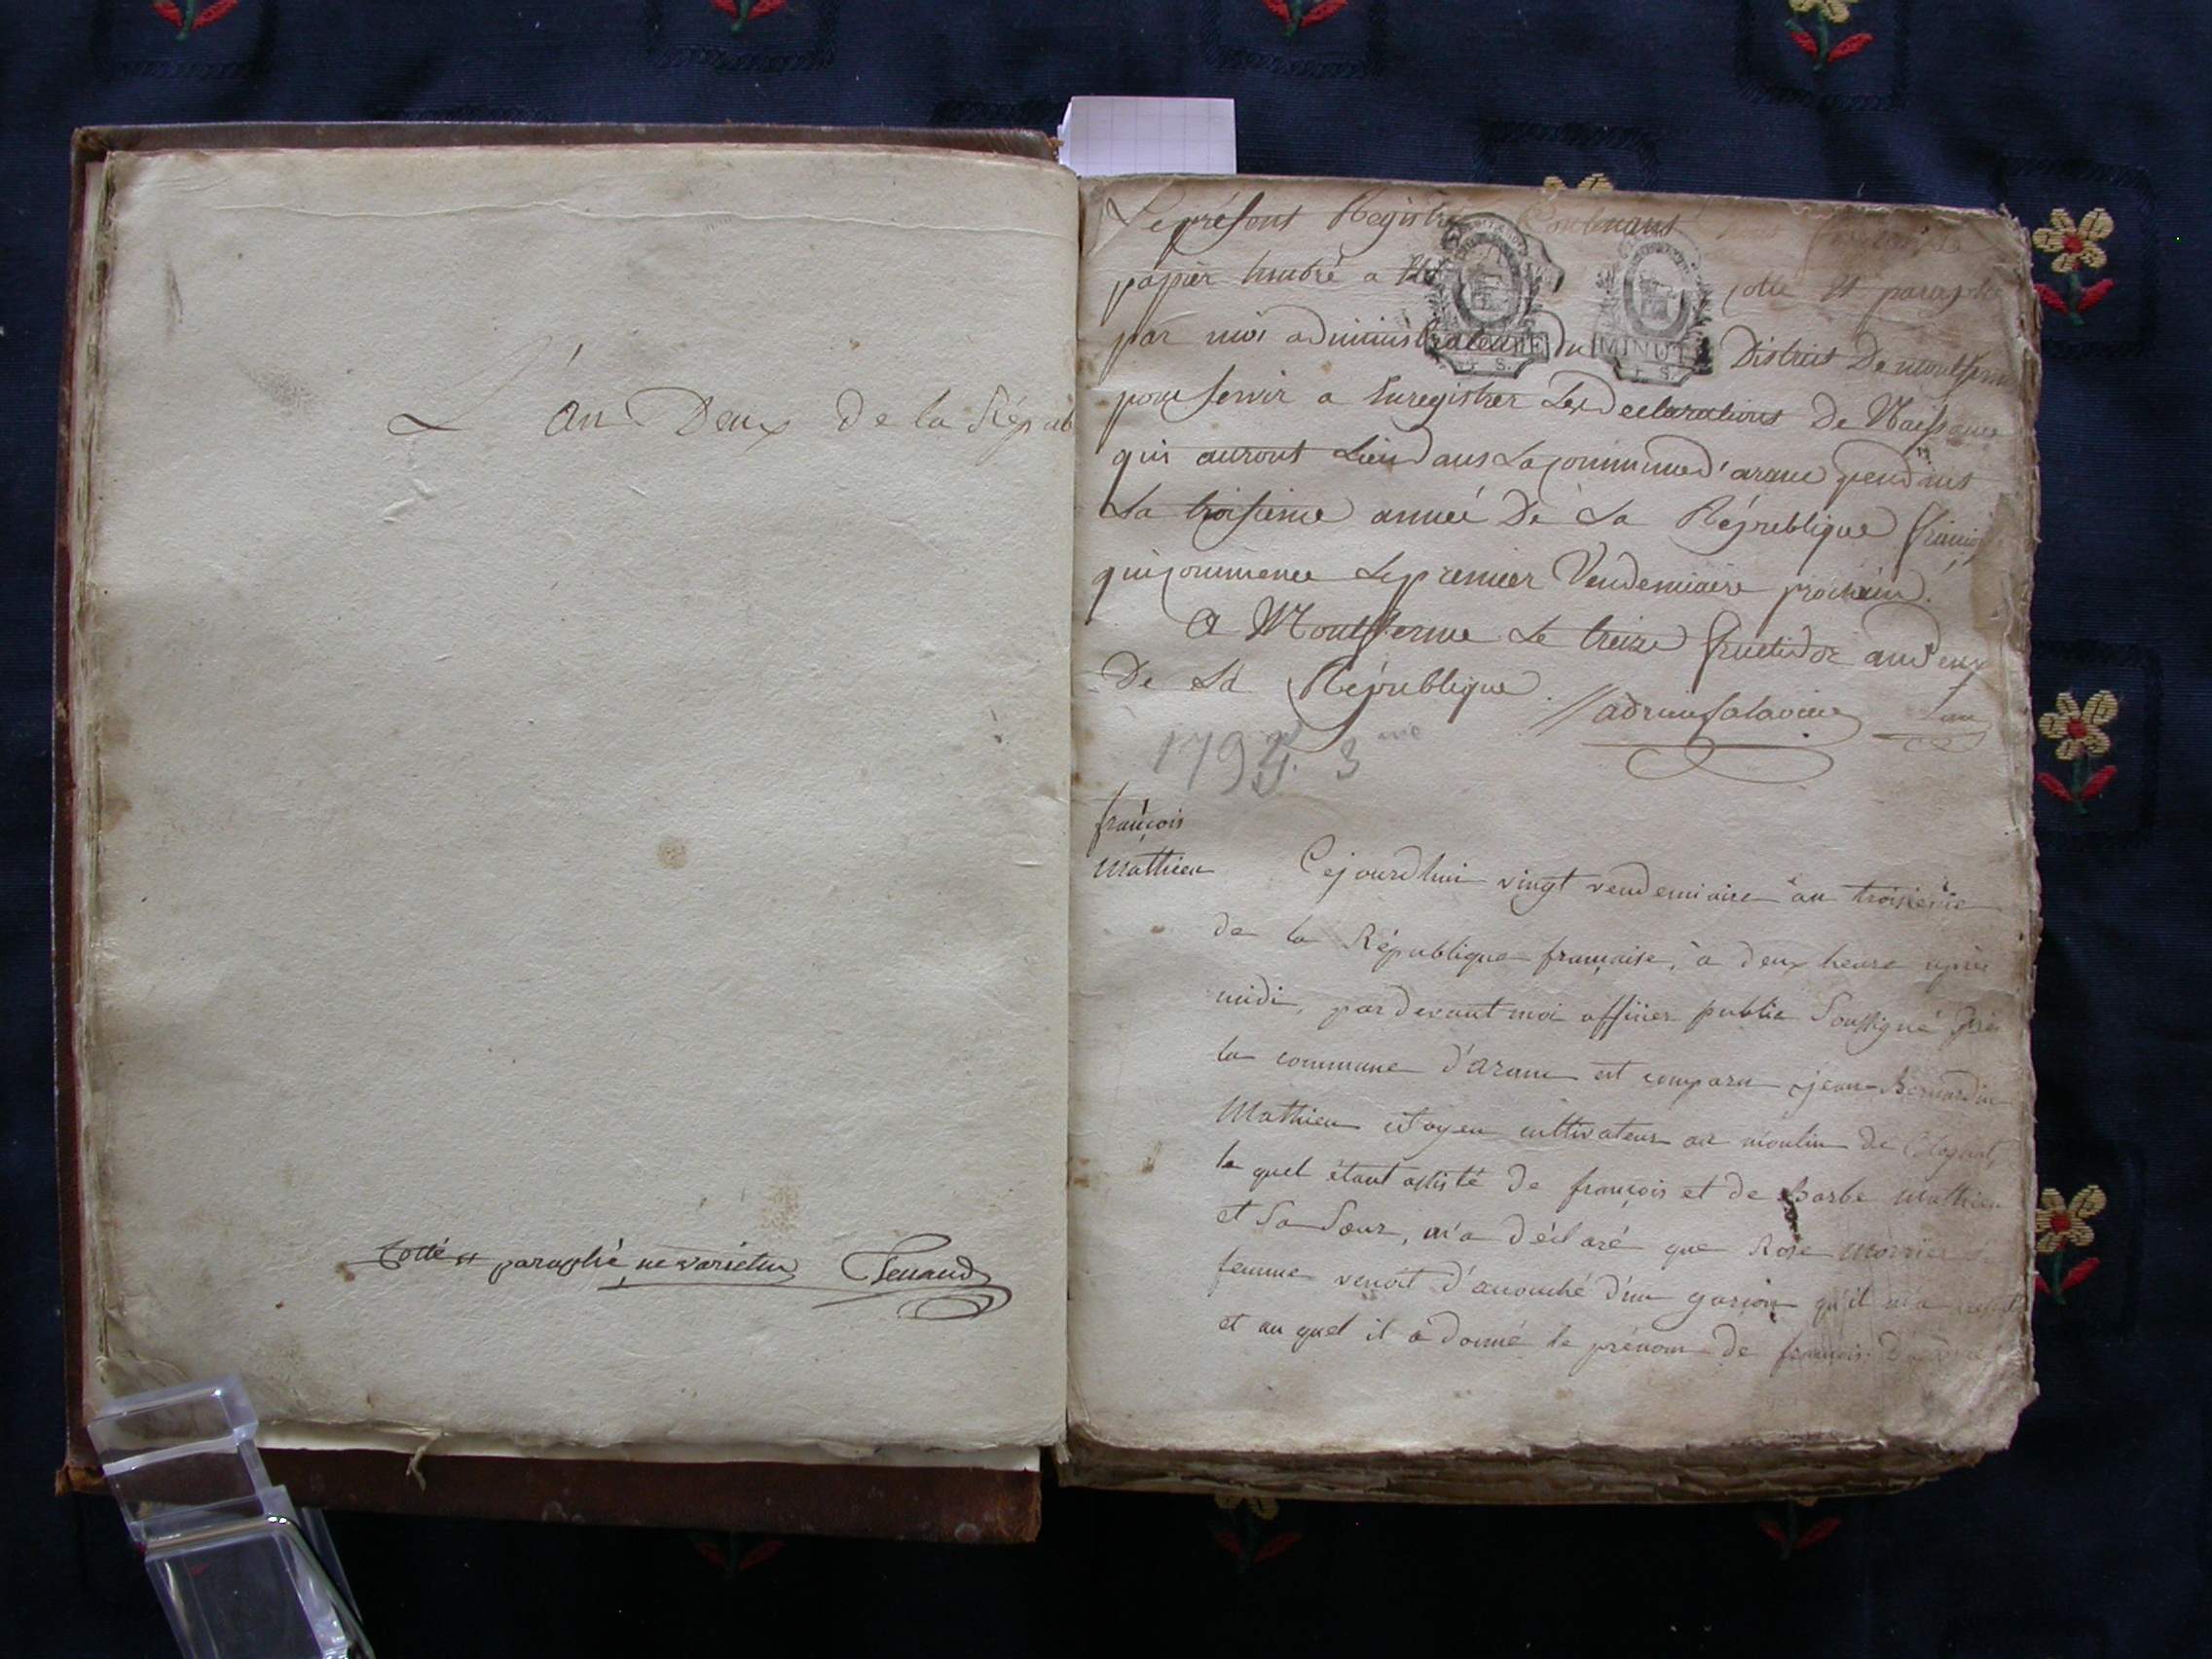 L'an Deux de la Répub
Cotté et paraphé ne varietur
Le présent Registre Contenant
papier timbré a cotté et paraphé
par moi administrateur du District De montferme
MINUTE
pour servir a Enregistrer Les Declarations De Naissance
qui auront Lieu dans La commune d'aranc pendant
La troisieme année De La République
qui commence Le premier Vendemiaire prochain.
A Montferme Le treize fructidor an deux
De La République.
179 3me
françois
Mathieu
Cejourdhui vingt vendemiaire an troisieme
de la République française, à deux heure après
midi, pardevant moi officier public Soussigné
la commune d'aranc est comparu jean-Bernardin
Mathieu citoyen cultivateur au moulin de
le quel étant assisté de françois et de Barbe Mathieu
et Sa Sœur, m'a déclaré que Rose
femme venoit d'accouché d'un garçon qu'il m'a
et au quel il a donné le prénom de françois